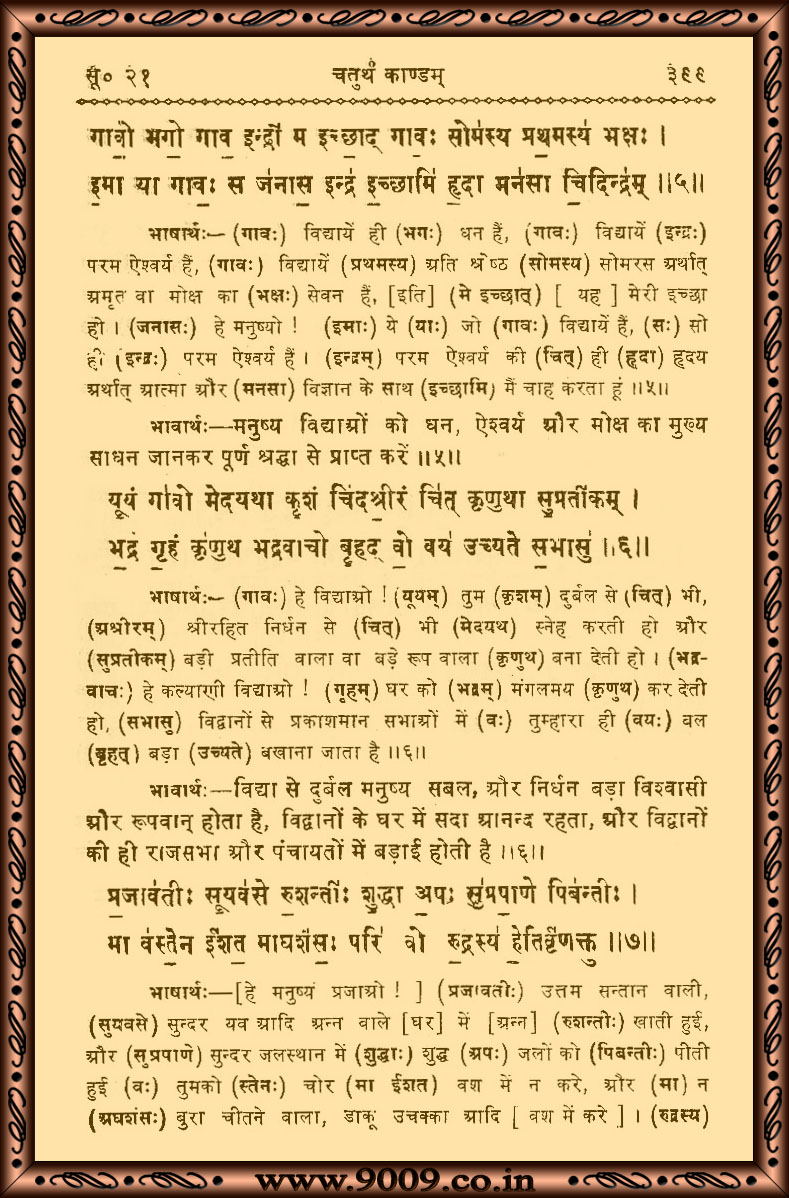 सू० २१ चतुर्थं काण्डम् ३९९
गावो॒ भगो॒ गाव॒ इन्द्रो॑ म इच्छा॒द् गावः॒ सोम॑स्य प्रथ॒मस्य॑ भ॒क्षः ।
इ॒मा या गावः॒ स ज॑नास॒ इन्द्र॑ इ॒च्छामि॑ हृ॒दा मन॑सा चि॒दिन्द्र॑म् ॥५॥
भाषार्थः— (गावः) विद्यायें ही (भगः) धन हैं, (गावः) विद्यायें (इन्द्रः)
परम ऐश्वर्य हैं, (गावः) विद्यायें (प्रथमस्य) अति श्रेष्ठ (सोमस्य) सोमरस अर्थात्
अमृत वा मोक्ष का (भक्षः) सेवन हैं, [इति] (मे इच्छात्) [ यह ] मेरी इच्छा
हो । (जनासः) हे मनुष्यो ! (इमाः) ये (याः) जो (गावः) विद्यायें हैं, (सः) सो
ही (इन्द्रः) परम ऐश्वर्य हैं । (इन्द्रम्) परम ऐश्वर्य की (चित्) ही (हृदा) हृदय
अर्थात् आत्मा और (मनसा) विज्ञान के साथ (इच्छामि) मैं चाह करता हूं ॥५॥
भावार्थः—मनुष्य विद्याओं को धन, ऐश्वर्य और मोक्ष का मुख्य
साधन जानकर पूर्ण श्रद्धा से प्राप्त करें ॥५॥
यू॒यं गा॑वो मेदयथा कृ॒शं चि॑दश्री॒रं चि॑त् कृणुथा सु॒प्रती॑कम् ।
भ॒द्रं गृ॒हं कृ॑णुथ भद्रवाचो बृ॒हद् वो॒ वय॑ उच्यते स॒भासु॑ ॥६॥
भाषार्थः— (गावः) हे विद्याओ ! (यूयम्) तुम (कृशम्) दुर्बल से (चित्) भी,
(अश्रीरम्) श्रीरहित निर्धन से (चित्) भी (मेदयथ) स्नेह करती हो और
(सुप्रतीकम्) बड़ी प्रतीति वाला वा बड़े रूप वाला (कृणुथ) बना देती हो । (भद्र-
वाचः) हे कल्याणी विद्याओ ! (गृहम्) घर को (भद्रम्) मंगलमय (कृणुथ) कर देती
हो, (सभासु) विद्वानों से प्रकाशमान सभाओं में (वः) तुम्हारा ही (वयः) बल
(बृहत्) बड़ा (उच्यते) बखाना जाता है ॥६॥
भावार्थः—विद्या से दुर्बल मनुष्य सबल, और निर्धन बड़ा विश्वासी
और रूपवान् होता है, विद्वानों के घर में सदा आनन्द रहता, और विद्वानों
की ही राजसभा और पंचायतों में बड़ाई होती है ॥६॥
प्र॒जाव॑तीः सू॒यव॑से रु॒शन्तीः॑ शु॒द्धा अ॒पः सु॑प्रपा॒णे पिब॑न्तीः ।
मा व॑स्ते॒न ई॑शत॒ माघशं॑सः॒ परि॑ वो रु॒द्रस्य॑ हे॒तिर्वृ॑णक्तु ॥७॥
भाषार्थः—[हे मनुष्य प्रजाओ ! ] (प्रजावतीः) उत्तम सन्तान वाली,
(सुयवसे) सुन्दर यव आदि अन्न वाले [घर] में [अन्न] (रुशन्तीः) खाती हुई,
और (सुप्रपाणे) सुन्दर जलस्थान में (शुद्धाः) शुद्ध (अपः) जलों को (पिबन्तीः) पीती
हुई (वः) तुमको (स्तेनः) चोर (मा ईशत) वश में न करे, और (मा) न
(अघशंसः) बुरा चीतने वाला, डाकू उचक्का आदि [ वश में करे ] । (रुद्रस्य)
www.9009.co.in